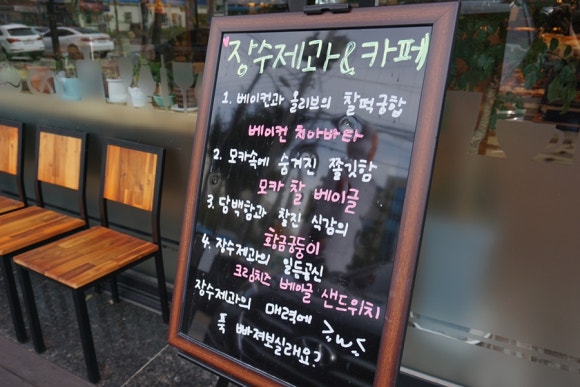 장수제과&카페
1. 베이컨과 올리브의 찰떡궁합
베이컨 치아바타
2. 모카속에 숨겨진 쫄깃함
모카 찰 베이글
3. 담백함과 찰진 식감의
황금궁둥이
4. 장수제과의 일등공신
크림치즈 베이글 샌드위치
장수제과의 매력에
푹 빠져보실래요?